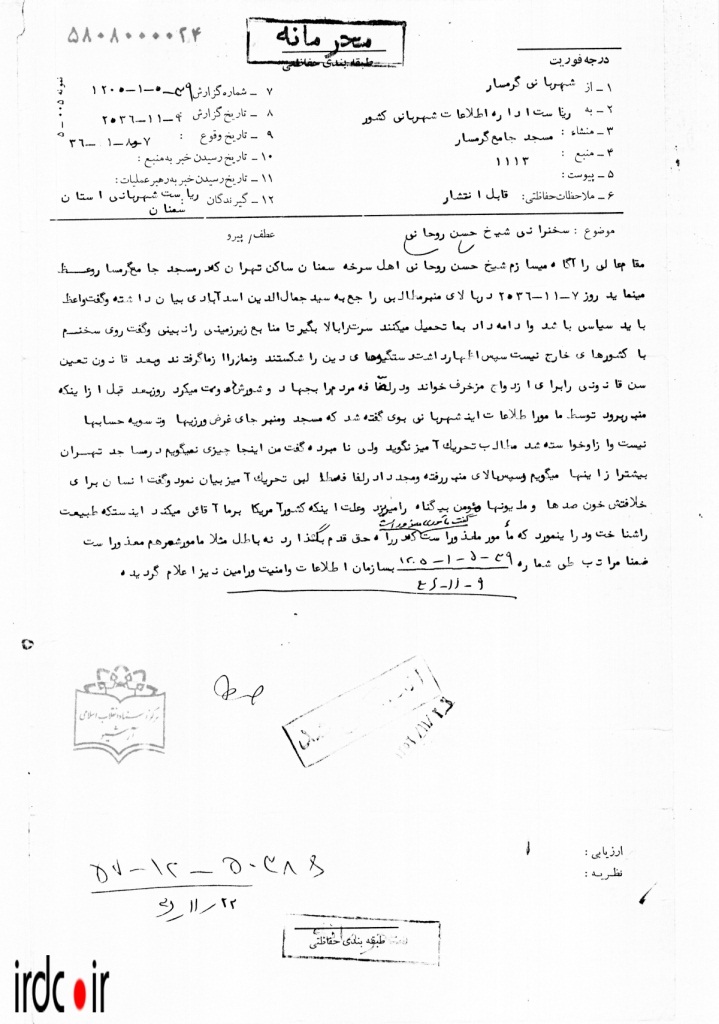 ۵۸۰۸۰۰۰۰۲۴
محرمانه
طبقه بندی حفاظتی
درجه فوریت
۱ـ از شهربانی گرمسار
۲ـ به ریاست اداره اطلاعات شهربانی کشور
۳ـ منشاء: مسجد جامع گرمسار
۴ـ منبع : ۱۱۱۳
۵ـ پیوست:
۶ـ ملاحظات حفاظتی: قابل انتشار
۷ـ شماره گزارش ۳۹-۵-۱-۱۲۰۵
۸ـ تاریخ گزارش ۹-۱۱-۲۵۳۶
۹ـ تاریخ وقوع :
۱۰ـ تاریخ رسیدن خبر به منبع :
۱۱ـ تاریخ رسیدن خبر به رهبر عملیات:
۱۲ـ گیرندگان ریاست شهربانی استان سمنان
موضوع : سخنرانی شیخ حسن روحانی
عطف/ پیرو
مقام عالی را آگاه میسازم شیخ حسن روحانی اهل سرخه سمنان ساکن تهران که در مسجد جامع گرمسار وعظ
مینماید روز ۷-۱۱-۲۵۳۶ در بالای منبر مطالبی راجع به سید جمال الدین اسدآبادی بیان داشته و گفت واعظ
باید سیاسی باشد وادامه داد بما تحمیل میکنند سرت را بالا بگیر تا منابع زیرزمینی را نبینی وگفت روی سخنم
با کشورهای خارج نیست سپس اظهار داشت سنگرهای دین را شکستند و نماز را از ما گرفتند وبعد قانون تعین
سن قانونی را برای ازدواج مزخرف خواند ودر لفافه مردم را بجهاد و شورش دعوت میکرد روز بعد قبل از اینکه
منبر برود توسط مامور اطلاعات این شهربانی بوی گفته شد که مسجد ومنبر جای غرض ورزیها و تسویه حسابها
نیست وازاو خواسته شد مطالب تحریک آمیز نگوید ولی نامبرده گفت من اینجا چیزی نمیگویم در مساجد تهران
بیشتر از اینها میگویم وسپس بالای منبر رفته ومجددا در لفافه مطالبی تحریک آمیز بیان نمود وگفت انسان برای
خلافتش خون صدها و ملیونها مؤمن بیگناه را میریزد وعلت اینکه کشور آمریکا بر ما آقائی میکند اینستکه طبیعت
را شناخت ودر این مورد که مأمور معذور است که در راه حق قدم بگذارد نه باطل مثلا مامور شمر هم معذور است
ضمنا مراتب طی شماره ۳۹-۵-۱-۱۲۰۵ بسازمان اطلاعات وامنیت ورامین نیز اعلام گردیده
مرکز اسناد انقلاب اسلامی
آرشیو
ارزیابی :
نظریه :
طبقه بندی حفاظتی
irdc.ir